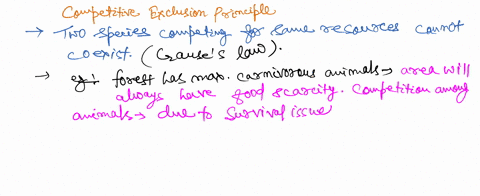 Competitive Exclusion Principle
→ Two species competing for same resources cannot
coexist. (Gause's law).
→ eg: forest has max. carnivorous animals → area will
always have food scarcity. Competition among
animals → due to survival issue